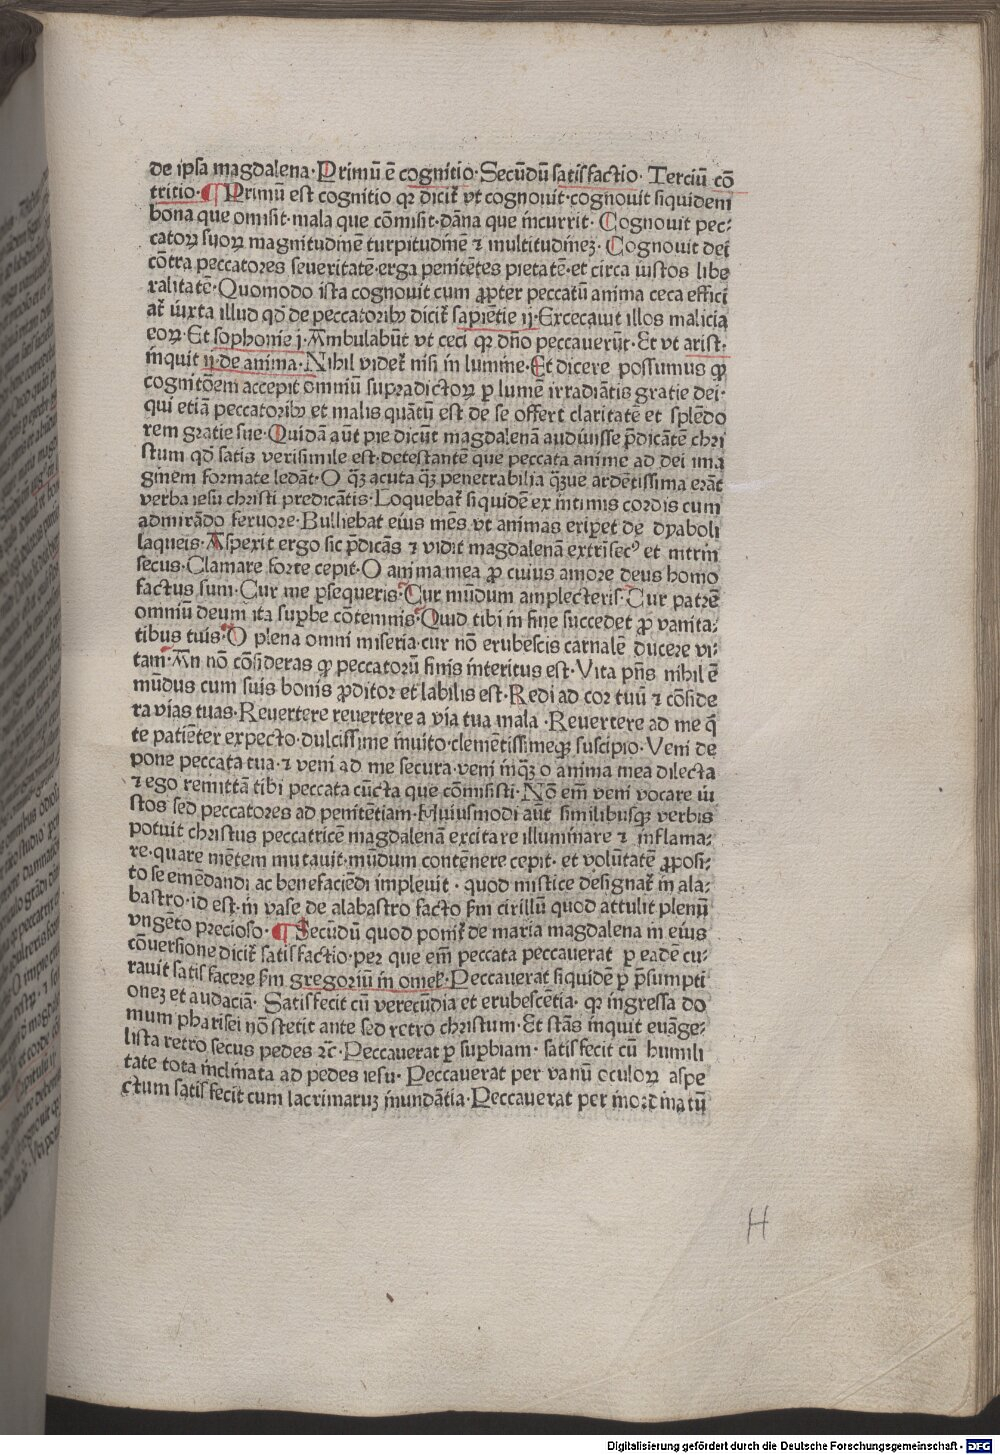 de ipsa magdalena· Primū ē cognitio· Secūdū satisfactio· Terciū cō
tritio· ¶ Primū est cognitio qꝛ dicit᷑ vt cognouit· cognouit siquidem
bona que omisit· mala que cōmisit· dāna que incurrit· Cognouit pec⸗
catoꝝ suoꝝ magnitudinē turpitudinē ⁊ multitudinēꝫ· Cognouit dei
cōtra peccatores seueritatē· erga penitētes pietatē· et circa iustos libe
ralitatē· Quomodo ista cognouit cum ꝓpter peccatū anima ceca effici
at᷑ iuxta illud qd̄ de peccatoribꝰ dicit᷑ sapiētie ij· Excecauit illos malicia
eoꝝ· Et sophonie j· Ambulabūt vt ceci qꝛ dn̄o peccauerūt· Et vt arist·
inquit ij de anima· Nihil videt᷑ nisi in lumine· Et dicere possumus ꝙ
cognitōem accepit omniū supradictoꝝ ꝑ lumē irradiātis gratie dei·
qui etiā peccatoribꝰ et malis quātū est de se offert claritatē et splēdo
rem gratie sue· Quidā aūt pie dicūt magdalenā audiuisse p̄dicātē chri
stum qd̄ satis verisimile est· detestantē que peccata anime ad dei ima
ginem formate ledāt· O qꝫ acuta qꝫ penetrabilia qꝫue ardētissima erāt
verba iesu christi predicātis· Loquebat᷑ siquidē ex intimis cordis cum
admirādo feruore· Bulliebat eius mēs vt animas eriꝑet de dyaboli
laqueis· Aspexit ergo sic p̄dicās ⁊ vidit magdalenā extrīsecꝰ et intrin
secus· Clamare forte cepit· O anima mea ꝓ cuius amore deus homo
factus sum· Cur me ꝑsequeris· Cur mūdum amplecteris· Cur patrē
omniū deum ita suꝑbe cōtemnis· Quid tibi in fine succedet ꝓ vanita⸗
tibus tuis· O plena omni miseria· cur nō erubescis carnalē ducere vi⸗
tam· An nō cōsideras ꝙ peccatorū finis interitus est· Vita pn̄s nihil ē
mūdus cum suis bonis ꝓditor et labilis est· Redi ad cor tuū ⁊ cōside
ra vias tuas· Reuertere reuertere a via tua mala· Reuertere ad me q̄
te patiēter expecto· dulcissime inuito· clemētissimeqꝫ suscipio· Veni de
pone peccata tua· ⁊ veni ad me secura· veni inqꝫ o anima mea dilecta
⁊ ego remittā tibi peccata cūcta que cōmisisti· Nō em̄ veni vocare iu
stos sed peccatores ad penitētiam· Huiusmodi aūt similibusqꝫ verbis
potuit christus peccatricē magdalenā excitare illuminare ⁊ inflama⸗
re· quare mētem mutauit· mūdum contēnere cepit· et volūtatē ꝓposi⸗
to se emēdandi ac benefaciēdi impleuit· quod mistice designat᷑ in ala⸗
bastro· id est· in vase de alabastro facto ẜm cirillū quod attulit plenū
vngēto precioso· ¶ Secūdū quod ponit᷑ de maria magdalena in eius
cōuersione dicit᷑ satisfactio· per que em̄ peccata peccauerat ꝑ eadē cu⸗
rauit satisfacere ẜm gregoriū in omel̕· Peccauerat siquidē ꝑ p̄sumpti
onēꝫ et audaciā· Satisfecit cū verecūdia et erubescētia· qꝛ ingressa do
mum pharisei nō stetit ante sed retro christum· Et stās inquit euāge⸗
lista retro secus pedes ⁊c̄· Peccauerat ꝑ suꝑbiam· satisfecit cū humili
tate tota inclinata ad pedes iesu· Peccauerat per vanū oculoꝝ aspe
ctum satisfecit cum lacrimaruꝫ inundātia· Peccauerat per inordinatū
H
Digitalisierung gefördert durch die Deutsche Forschungsgemeinschaft - DFG